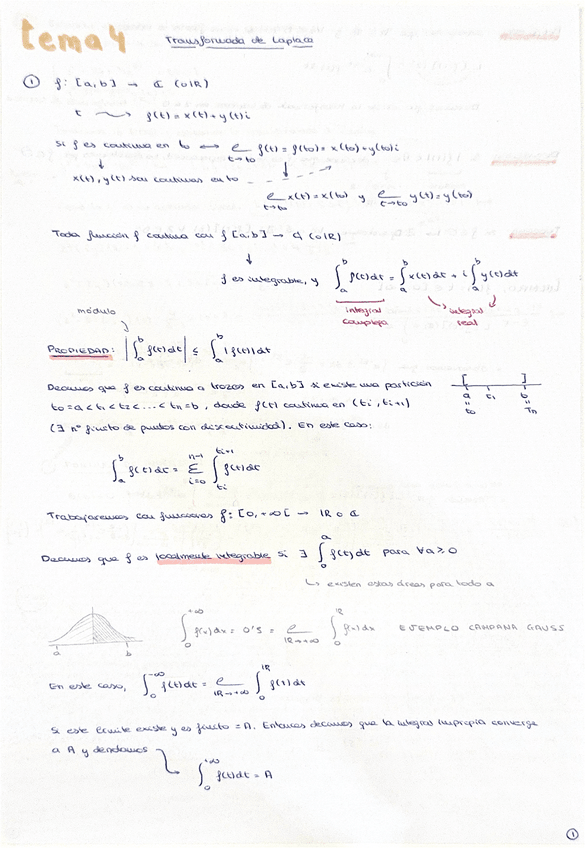 tema 4
Transformada de Laplace
① f: [a,b] → ℂ (o ℝ)
t ⟿ f(t) = x(t) + y(t)i
Si f es continua en t0 ⟺ ℓ t→t0 f(t) = f(t0) = x(t0) + y(t0)i
x(t), y(t) son continuas en t0
ℓ t→t0 x(t) = x(t0) y ℓ t→t0 y(t) = y(t0)
Toda función f continua con f [a,b] → ℂ (o ℝ)
f es integrable, y ∫_a^b f(t)dt = ∫_a^b x(t)dt + i ∫_a^b y(t)dt
integral compleja
integral real
módulo
PROPIEDAD: |∫_a^b f(t)dt| ≤ ∫_a^b |f(t)|dt
Decimos que f es continua a trozos en [a,b] si existe una partición
t0 = a < t1 < t2 < ... < tn = b, donde f(t) continua en (ti, ti+1)
[ ]
a t1 b
" "
t0 Tn
(∃ nº finito de puntos con discontinuidad). En este caso:
∫_a^b f(t)dt = Σ_{i=0}^{n-1} ∫_{ti}^{ti+1} f(t)dt
Trabajaremos con funciones f: [0, +∞[ → ℝ o ℂ
Decimos que f es localmente integrable si ∃ ∫_0^a f(t)dt para ∀a ≥ 0
↳ existen estas áreas para todo a
a b
∫_0^{+∞} f(x)dx = 0'5 = ℓ R→+∞ ∫_0^R f(x)dx EJEMPLO CAMPANA GAUSS
En este caso, ∫_0^{-∞} f(t)dt = ℓ R→+∞ ∫_0^R f(t)dt
Si este límite existe y es finito = A. Entonces decimos que la integral impropia converge
a A y denotamos
∫_0^{+∞} f(t)dt = A
①